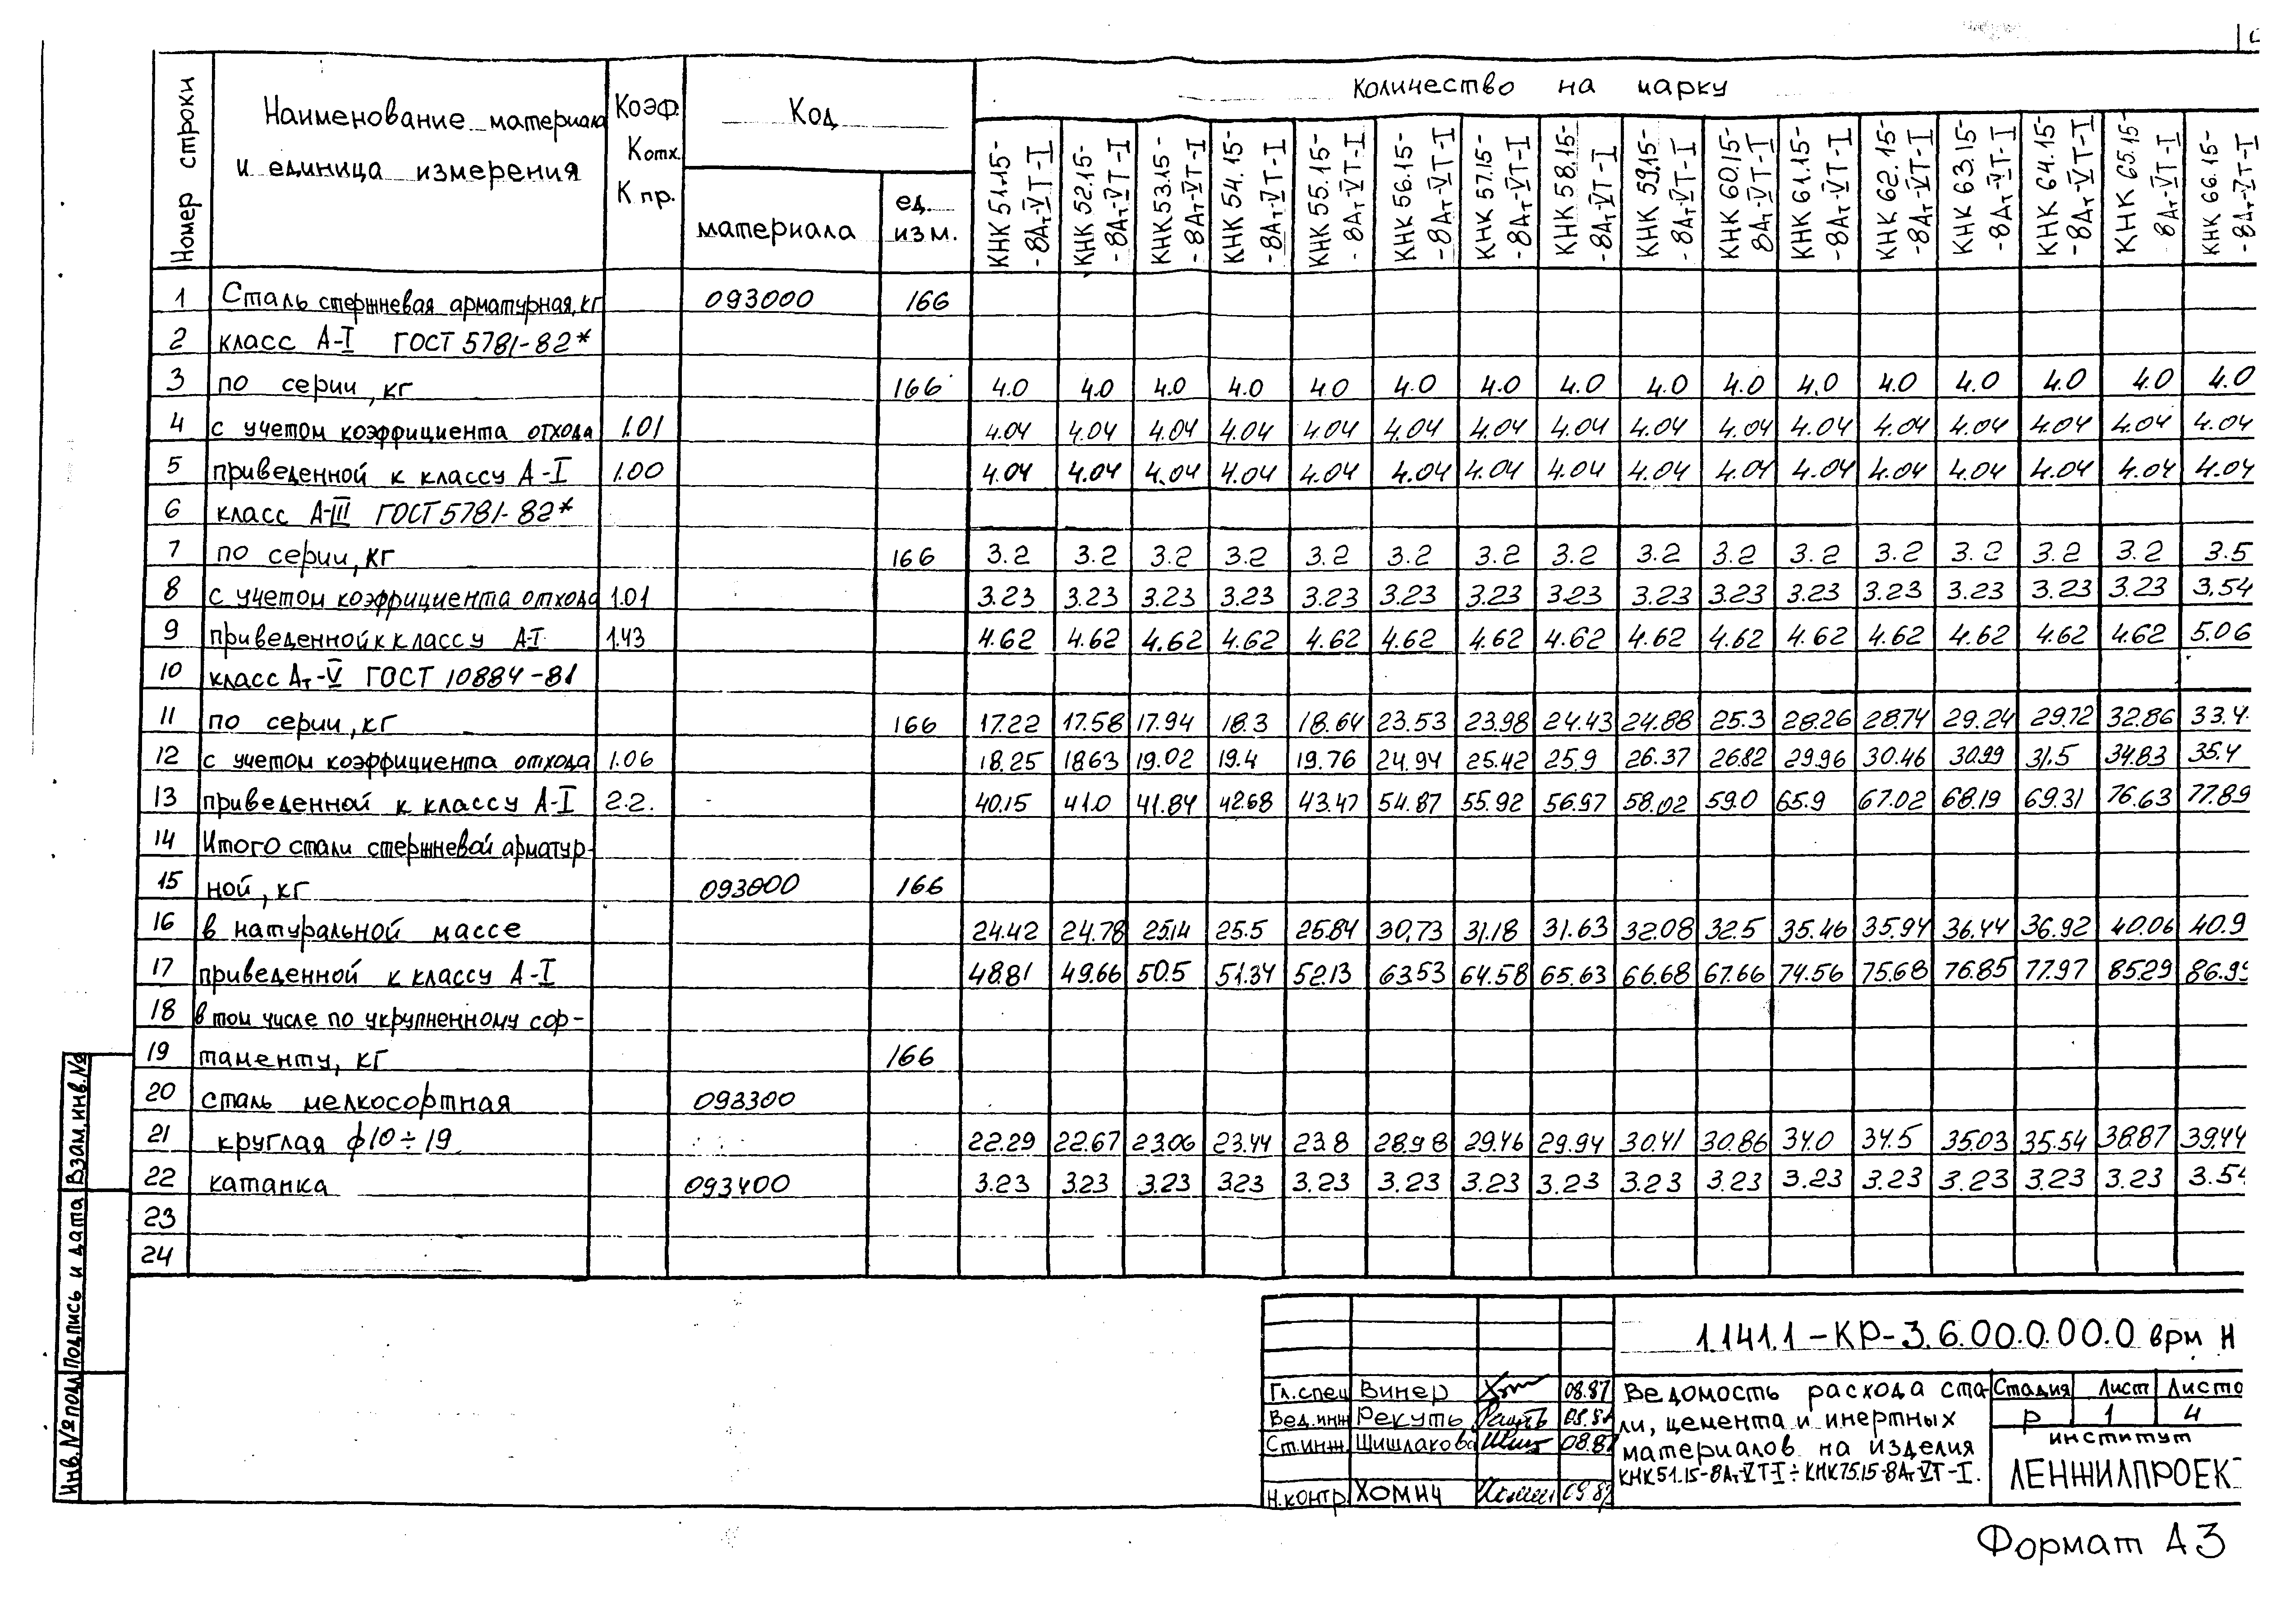 Номер строки
Наименование материала
и единица измерения
Коэф.
Котх.
К пр.
Код
материала
ед.
изм.
Количество на марку
КНК 51.15-
-8Ат-VТ-I
КНК 52.15-
-8Ат-VТ-I
КНК 53.15-
-8Ат-VТ-I
КНК 54.15-
-8Ат-VТ-I
КНК 55.15-
-8Ат-VТ-I
КНК 56.15-
-8Ат-VТ-I
КНК 57.15-
-8Ат-VТ-I
КНК 58.15-
-8Ат-VТ-I
КНК 59.15-
-8Ат-VТ-I
КНК 60.15-
8Ат-VТ-I
КНК 61.15-
-8Ат-VТ-I
КНК 62.15-
-8Ат-VТ-I
КНК 63.15-
-8Ат-VТ-I
КНК 64.15-
-8Ат-VТ-I
КНК 65.15-
8Ат-VТ-I
КНК 66.15-
-8Ат-VТ-I
1 Сталь стержневая арматурная, кг 093000 166
2 класс А-I ГОСТ 5781-82*
3 по серии, кг 166 4.0 4.0 4.0 4.0 4.0 4.0 4.0 4.0 4.0 4.0 4.0 4.0 4.0 4.0 4.0 4.0
4 с учетом коэффициента отхода 1.01 4.04 4.04 4.04 4.04 4.04 4.04 4.04 4.04 4.04 4.04 4.04 4.04 4.04 4.04 4.04 4.04
5 приведенной к классу А-I 1.00 4.04 4.04 4.04 4.04 4.04 4.04 4.04 4.04 4.04 4.04 4.04 4.04 4.04 4.04 4.04 4.04
6 класс А-III ГОСТ 5781-82*
7 по серии, кг 166 3.2 3.2 3.2 3.2 3.2 3.2 3.2 3.2 3.2 3.2 3.2 3.2 3.2 3.2 3.2 3.5
8 с учетом коэффициента отхода 1.01 3.23 3.23 3.23 3.23 3.23 3.23 3.23 3.23 3.23 3.23 3.23 3.23 3.23 3.23 3.23 3.54
9 приведенной к классу А-I 1.43 4.62 4.62 4.62 4.62 4.62 4.62 4.62 4.62 4.62 4.62 4.62 4.62 4.62 4.62 4.62 5.06
10 класс Ат-V ГОСТ 10884-81
11 по серии, кг 166 17.22 17.58 17.94 18.3 18.64 23.53 23.98 24.43 24.88 25.3 28.26 28.74 29.24 29.72 32.86 33.4
12 с учетом коэффициента отхода 1.06 18.25 18.63 19.02 19.4 19.76 24.94 25.42 25.9 26.37 26.82 29.96 30.46 30.99 31.5 34.83 35.4
13 приведенной к классу А-I 2.2. 40.15 41.0 41.84 42.68 43.47 54.87 55.92 56.97 58.02 59.0 65.9 67.02 68.19 69.31 76.63 77.89
14 Итого стали стержневой арматур-
15 ной, кг 093000 166
16 в натуральной массе 24.42 24.78 25.14 25.5 25.84 30.73 31.18 31.63 32.08 32.5 35.46 35.94 36.44 36.92 40.06 40.9
17 приведенной к классу А-I 48.81 49.66 50.5 51.34 52.13 63.53 64.58 65.63 66.68 67.66 74.56 75.68 76.85 77.97 85.29 86.99
18 в том числе по укрупненному сор-
19 таменту, кг 166
20 сталь мелкосортная 093300
21 круглая ф10÷19 22.29 22.67 23.06 23.44 23.8 28.98 29.46 29.94 30.41 30.86 34.0 34.5 35.03 35.54 38.87 39.44
22 катанка 093400 3.23 3.23 3.23 3.23 3.23 3.23 3.23 3.23 3.23 3.23 3.23 3.23 3.23 3.23 3.23 3.54
23
24
Инв.№подл Подпись и дата Взам.инв.№
1.141.1-КР-3.6.00.0.00.0 врм Н
Гл.спец Винер 08.87
Вед.инж Рекуть 08.87
Ст.инж. Шишлакова 08.87
Н.контр. Хомич 09.87
Ведомость расхода ста-
ли, цемента и инертных
материалов на изделия
КНК51.15-8Ат-VТ-I÷КНК75.15-8Ат-VТ-I.
Стадия Лист Листо
Р 1 4
институт
ЛЕНЖИЛПРОЕК
Формат А3